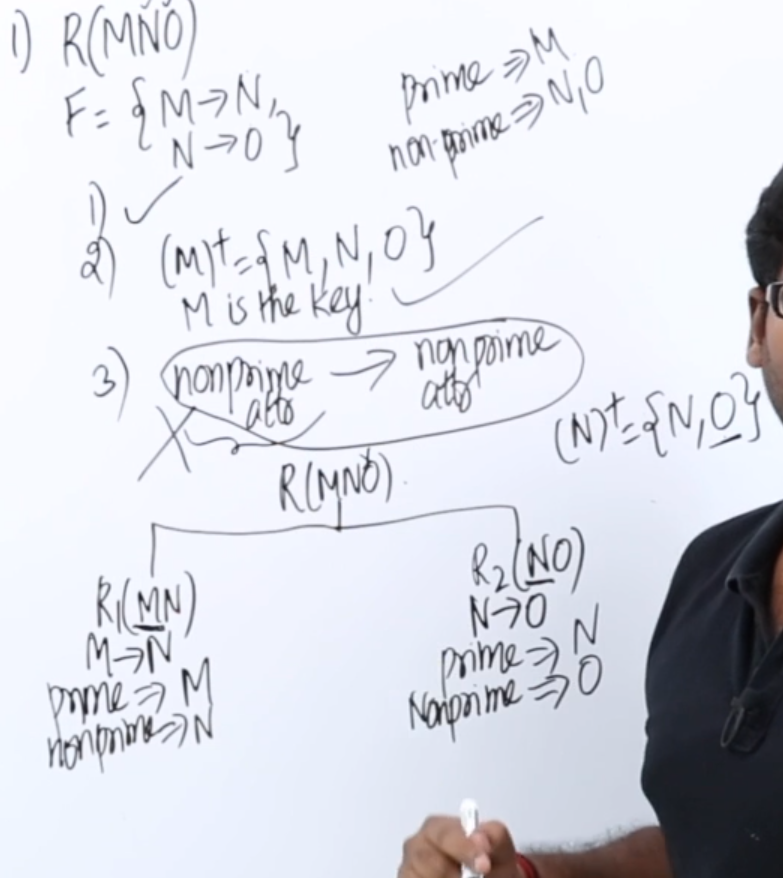 1) R(MNO)
F = { M→N,
N→O }
prime ⇒ M
non-prime ⇒ N,O
1) ✓
2) (M)⁺ = { M, N, O }
M is the key! ✓
3) nonprime attr → nonprime attr
(N)⁺ = {N, O}
R(MNO)
R₁(MN)
M→N
prime ⇒ M
nonprime ⇒ N
R₂(NO)
N→O
prime ⇒ N
Nonprime ⇒ O